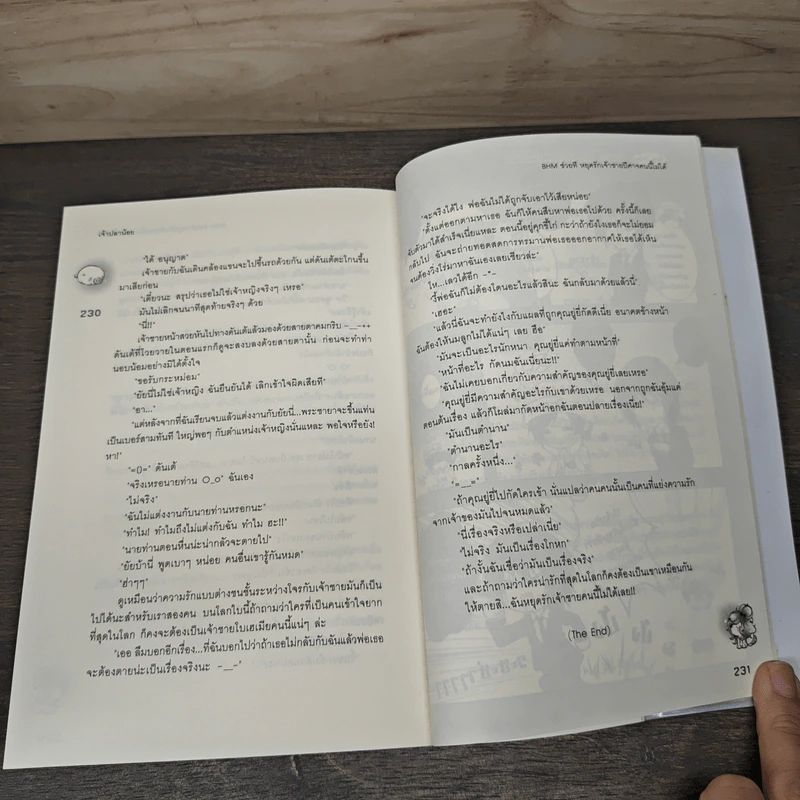 เจ้าปลาน้อย
230
"ได้ อนุญาต"
เจ้าชายกับฉันเดินคล้องแขนจะไปขึ้นรถด้วยกัน แต่ดันเต้ตะโกนขึ้น
มาเสียก่อน
"เดี๋ยวนะ สรุปว่าเธอไม่ใช่เจ้าหญิงจริงๆ เหรอ"
มันไม่เลิกจนนาทีสุดท้ายจริงๆ ด้วย
"นี่!!"
เจ้าชายหน้าสวยหันไปทางดันเต้แล้วมองด้วยสายตาคมกริบ -__-++
ดันเต้ที่โวยวายในตอนแรกก็ดูจะสงบลงด้วยสายตานั้น ก่อนจะทำท่า
นอบน้อมอย่างมิได้ตั้งใจ
"ขอรับกระหม่อม"
"ยัยนี่ไม่ใช่เจ้าหญิง ฉันยืนยันได้ เลิกเข้าใจผิดเสียที"
"อา..."
"แต่หลังจากที่ฉันเรียนจบแล้วแต่งงานกับยัยนี่...พระชายาจะขึ้นแท่น
เป็นเบอร์สามทันที ใหญ่พอๆ กับตำแหน่งเจ้าหญิงนั่นแหละ พอใจหรือยัง!
หา!"
"=()=" ดันเต้
"จริงเหรอนายท่าน O_o" ฉันเอง
"ไม่จริง"
"ฉันไม่แต่งงานกับนายท่านหรอกนะ"
"ทำไม! ทำไมถึงไม่แต่งกับฉัน ทำไม ฮะ!!"
"นายท่านตอนหื่นน่ะน่ากลัวจะตายไป"
"ยัยบ้านี่ พูดเบาๆ หน่อย คนอื่นเขารู้กันหมด"
"ฮ่าๆๆ"
ดูเหมือนว่าความรักแบบต่างชนชั้นระหว่างโจรกับเจ้าชายมันก็เป็น
ไปได้นะสำหรับเราสองคน บนโลกใบนี้ถ้าถามว่าใครที่เป็นคนเข้าใจยาก
ที่สุดในโลก ก็คงจะต้องเป็นเจ้าชายโบเฮเมียคนนี้แน่ๆ ล่ะ
"เออ ลืมบอกอีกเรื่อง...ที่ฉันบอกไปว่าถ้าเธอไม่กลับกับฉันแล้วพ่อเธอ
จะต้องตายน่ะเป็นเรื่องจริงนะ -__-"
BHM ช่วยที หยุดรักเจ้าชายปีศาจคนนี้ไม่ได้
"จะจริงได้ไง พ่อฉันไม่ได้ถูกจับเอาไว้เสียหน่อย"
"ตั้งแต่ออกตามหาเธอ ฉันก็ให้คนสืบหาพ่อเธอไปด้วย ครั้งนี้ก็เลย
จับตัวมาได้สำเร็จเนี่ยแหละ ตอนนี้อยู่คุกขี้ไก่ กะว่าถ้ายังไงเธอก็จะไม่ยอม
กลับไป ฉันจะถ่ายทอดสดการทรมานพ่อเธอออกอากาศให้เธอได้เห็น
จนต้องวิ่งโร่มาหาฉันเองเลยเชียวล่ะ"
ให...เลวได้อีก -"-
"งี้พ่อฉันก็ไม่ต้องโดนอะไรแล้วสินะ ฉันกลับมาด้วยแล้วนี่"
"เฮอะ"
"แล้วนี่ฉันจะทำยังไงกับแผลที่ถูกคุณยู่ยี่กัดดีเนี่ย อนาคตข้างหน้า
ฉันต้องให้นมลูกไม่ได้แน่ๆ เลย ฮือ"
"มันจะเป็นอะไรนักหนา คุณยู่ยี่แค่ทำตามหน้าที่"
"หน้าที่อะไร กัดนมฉันเนี่ยนะ!!"
"ฉันไม่เคยบอกเกี่ยวกับความสำคัญของคุณยู่ยี่เลยเหรอ"
"คุณยู่ยี่มีความสำคัญอะไรกับเขาด้วยเหรอ นอกจากถูกฉันอุ้มแต่
ตอนต้นเรื่อง แล้วก็โผล่มากัดหน้าอกฉันตอนปลายเรื่องเนี่ย!"
"มันเป็นตำนาน"
"ตำนานอะไร"
"กาลครั้งหนึ่ง..."
"=__="
"ถ้าคุณยู่ยี่ไปกัดใครเข้า นั่นแปลว่าคนคนนั้นเป็นคนที่แย่งความรัก
จากเจ้าของมันไปจนหมดแล้ว"
"นี่เรื่องจริงหรือเปล่าเนี่ย"
"ไม่จริง มันเป็นเรื่องโกหก"
"ถ้างั้นฉันเชื่อว่ามันเป็นเรื่องจริง"
และถ้าถามว่าใครน่ารักที่สุดในโลกก็คงต้องเป็นเขาเหมือนกัน
ให้ตายสิ...ฉันหยุดรักเจ้าชายคนนี้ไม่ได้เลย!!
(The End)
231